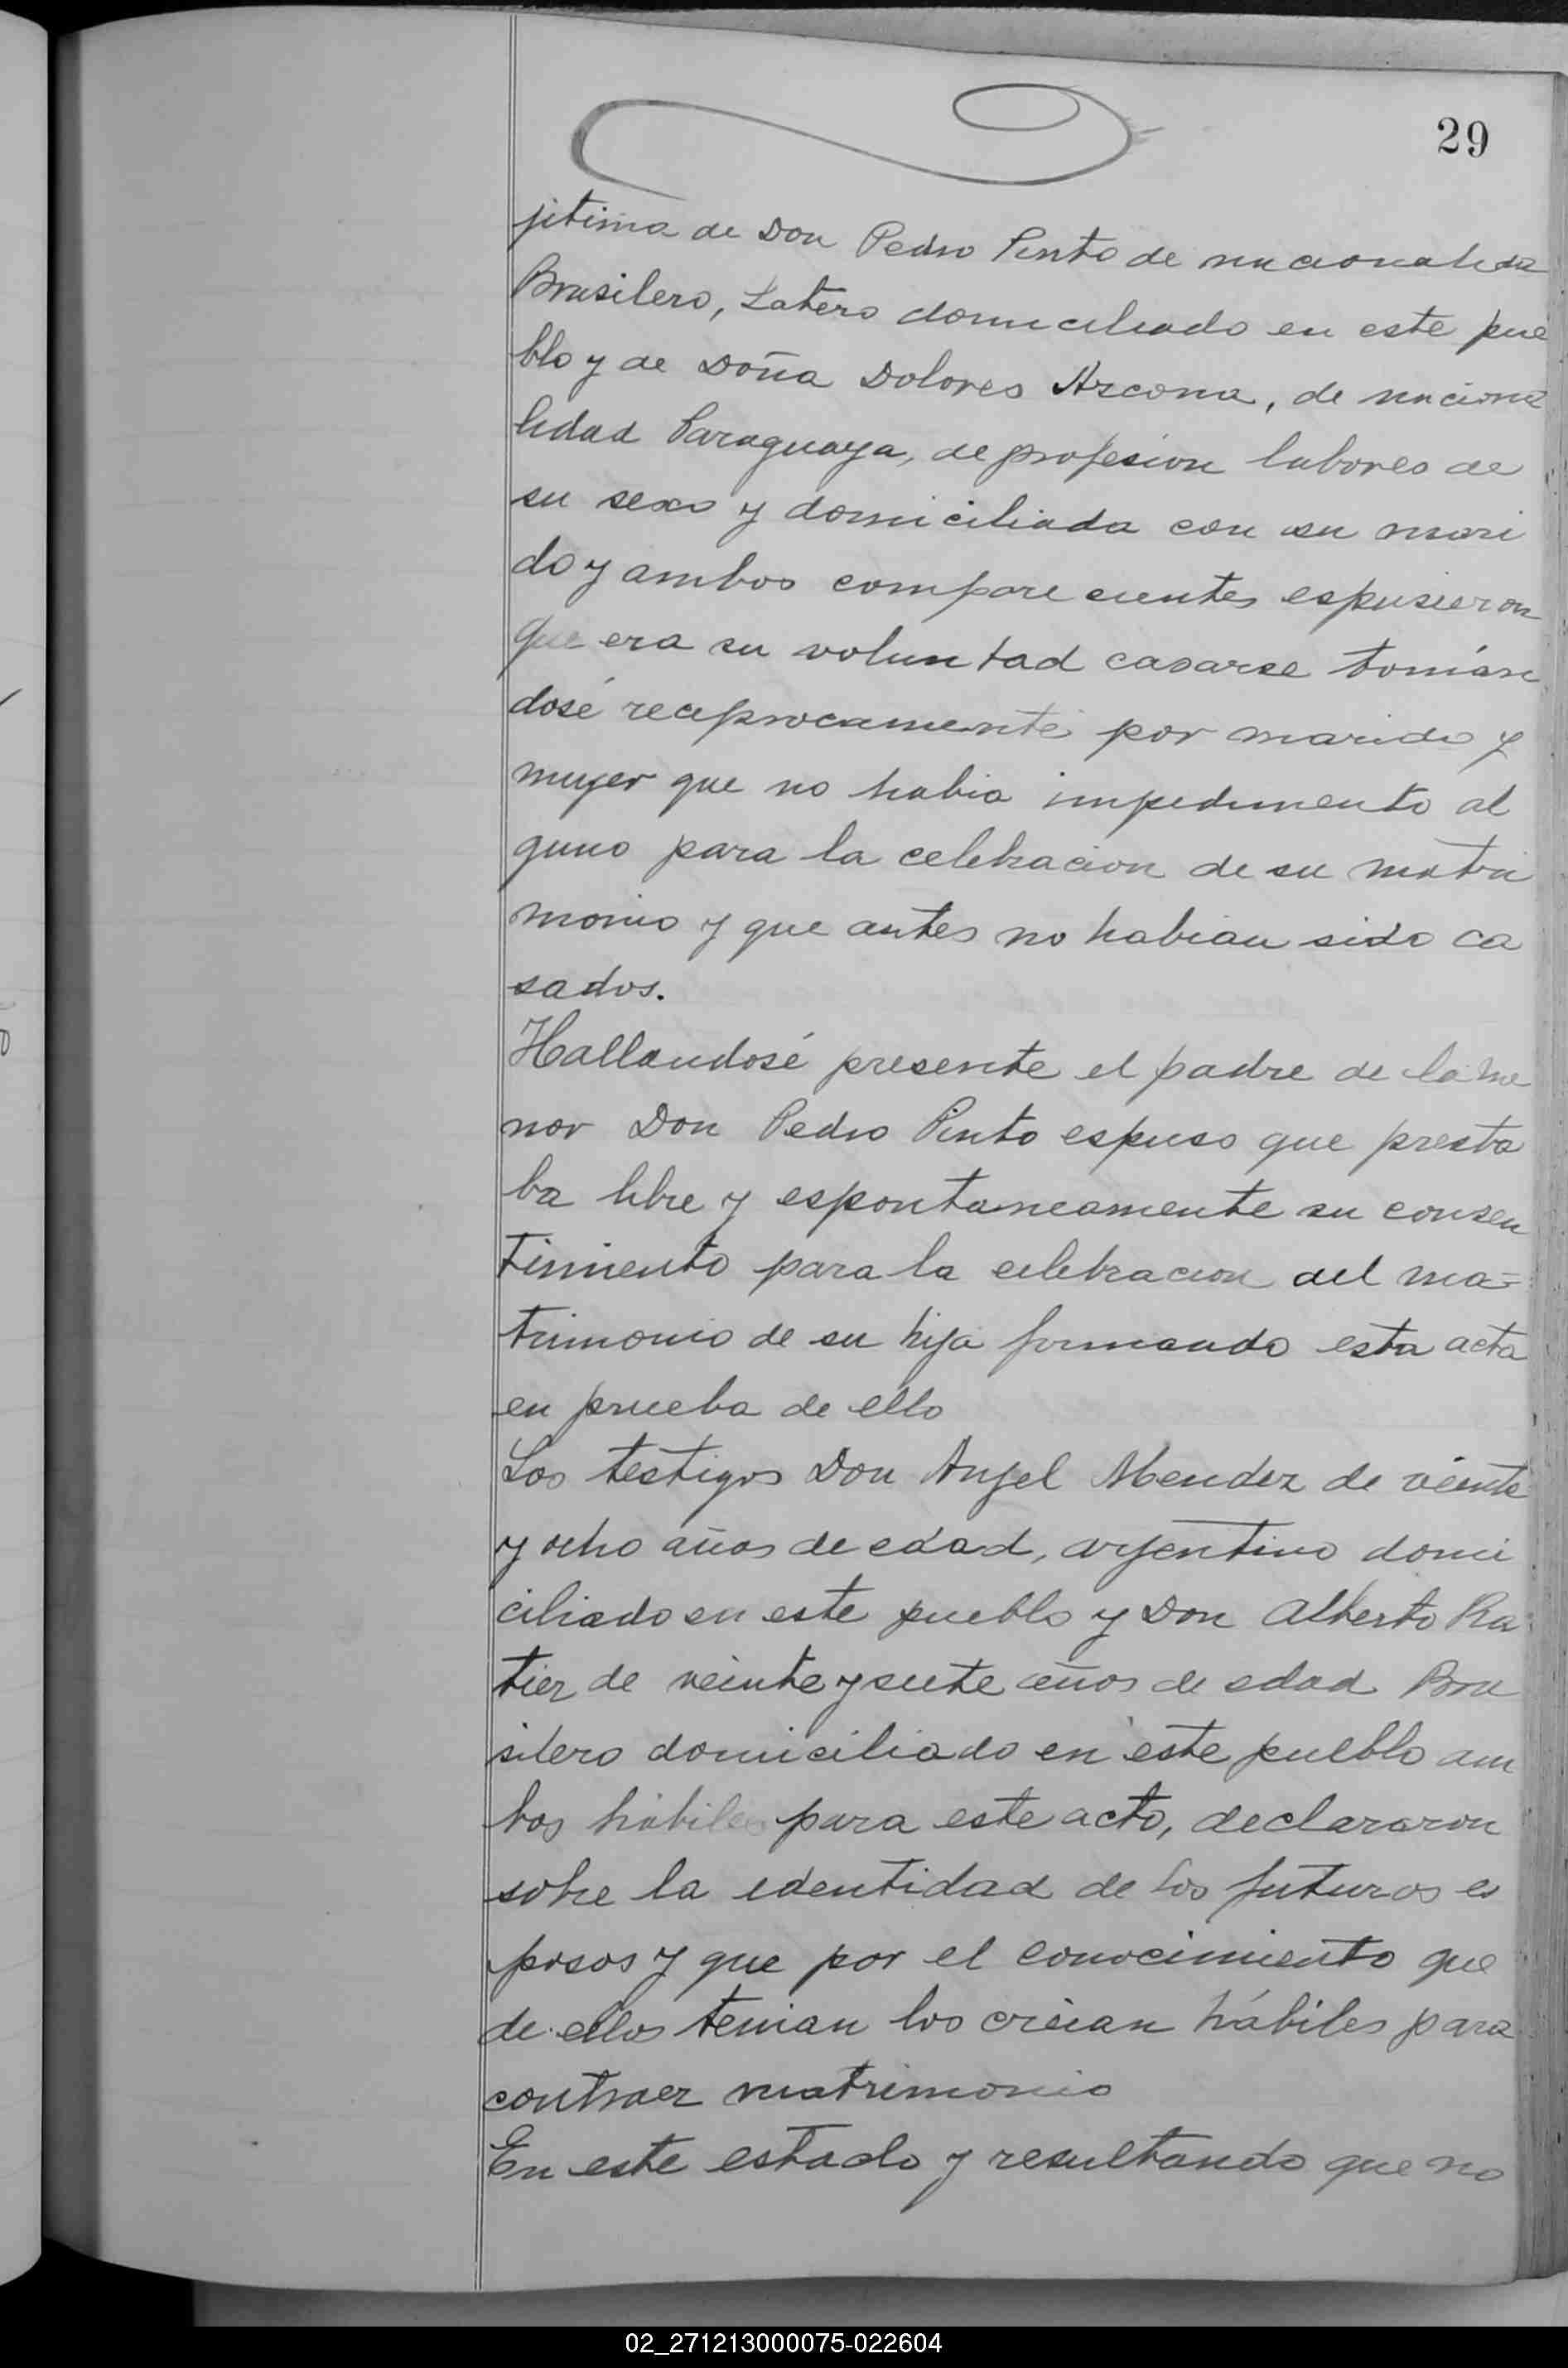 29
jitima de Don Pedro Pinto de nacionalida
Brasilero, Latero domiciliado en este pue
blo y de Doña Dolores Azcona, de naciona
lidad Paraguaya, de profesion labores de
su sexo y domiciliada con su mari
do y ambos comparecientes espusieron
que era su voluntad casarse tomán
dosé reciprocamente por marido y
mujer que no habia impedimento al
guno para la celebracion de su matri
monio y que antes no habian sido ca
sados.
Hallandosé presente el padre de la me
nor Don Pedro Pinto espuso que presta
ba libre y espontaneamente su consen
timiento para la celebracion del ma-
trimonio de su hija firmando esta acta
en prueba de ello
Los testigos Don Anjel Mendez de veinte
y ocho años de edad, arjentino domi
ciliado en este pueblo y Don Alberto Ra
tier de veinte y siete años de edad Bra
silero domiciliado en este pueblo am
bos hábiles para este acto, declararon
sobre la identidad de los futuros es
posos y que por el conocimiento que
de ellos tenian los creian hábiles para
contraer matrimonio
En este estado y resultando que no
02_271213000075-022604